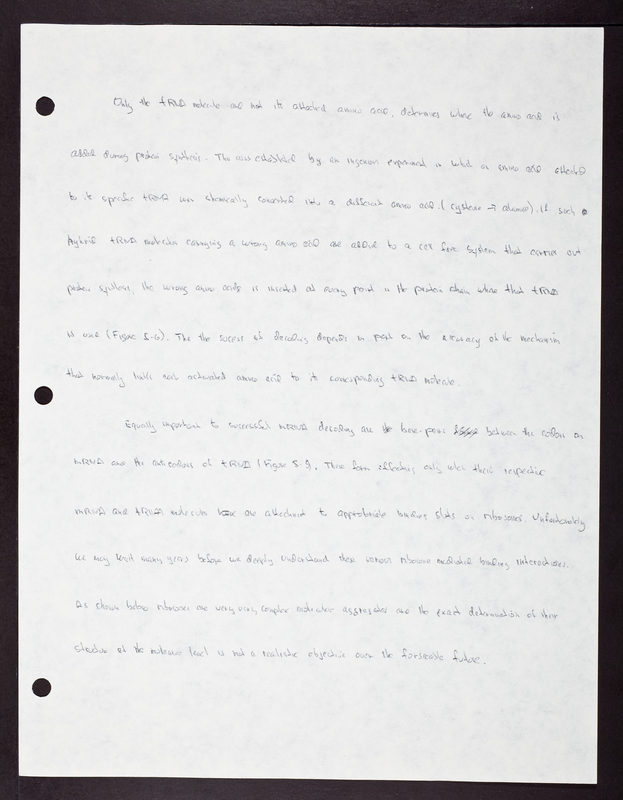 Only the tRNA molecule and not its attached amino acid, determines where the amino acid is
added during protein synthesis. This was established by an ingenious experiment in which an amino acid attached
to its specific tRNA was chemically converted into a different amino acid (cysteine → alanine). If such
hybrid tRNA molecules carrying a wrong amino acid are added to a cell free system that carries out
protein synthesis, the wrong amino acids is inserted at every point in the protein chain where that tRNA
is used (Figure 5-6). Thus the success of decoding depends in part on the accuracy of the mechanism
that normally links each activated amino acid to its corresponding tRNA molecule.
Equally important to successful mRNA decoding are the base-pairs between the codons on
mRNA and the anticodons of tRNA (Figure 5-). These form effectively only when their respective
mRNA and tRNA molecules are attached to appropriate binding sites on ribosomes. Unfortunately
we may wait many years before we deeply understand these various ribosome mediated binding interactions.
As shown below ribosomes are very very complex molecular aggregates and the exact determination of their
structure at the molecular level is not a realistic objective over the forseeable future.